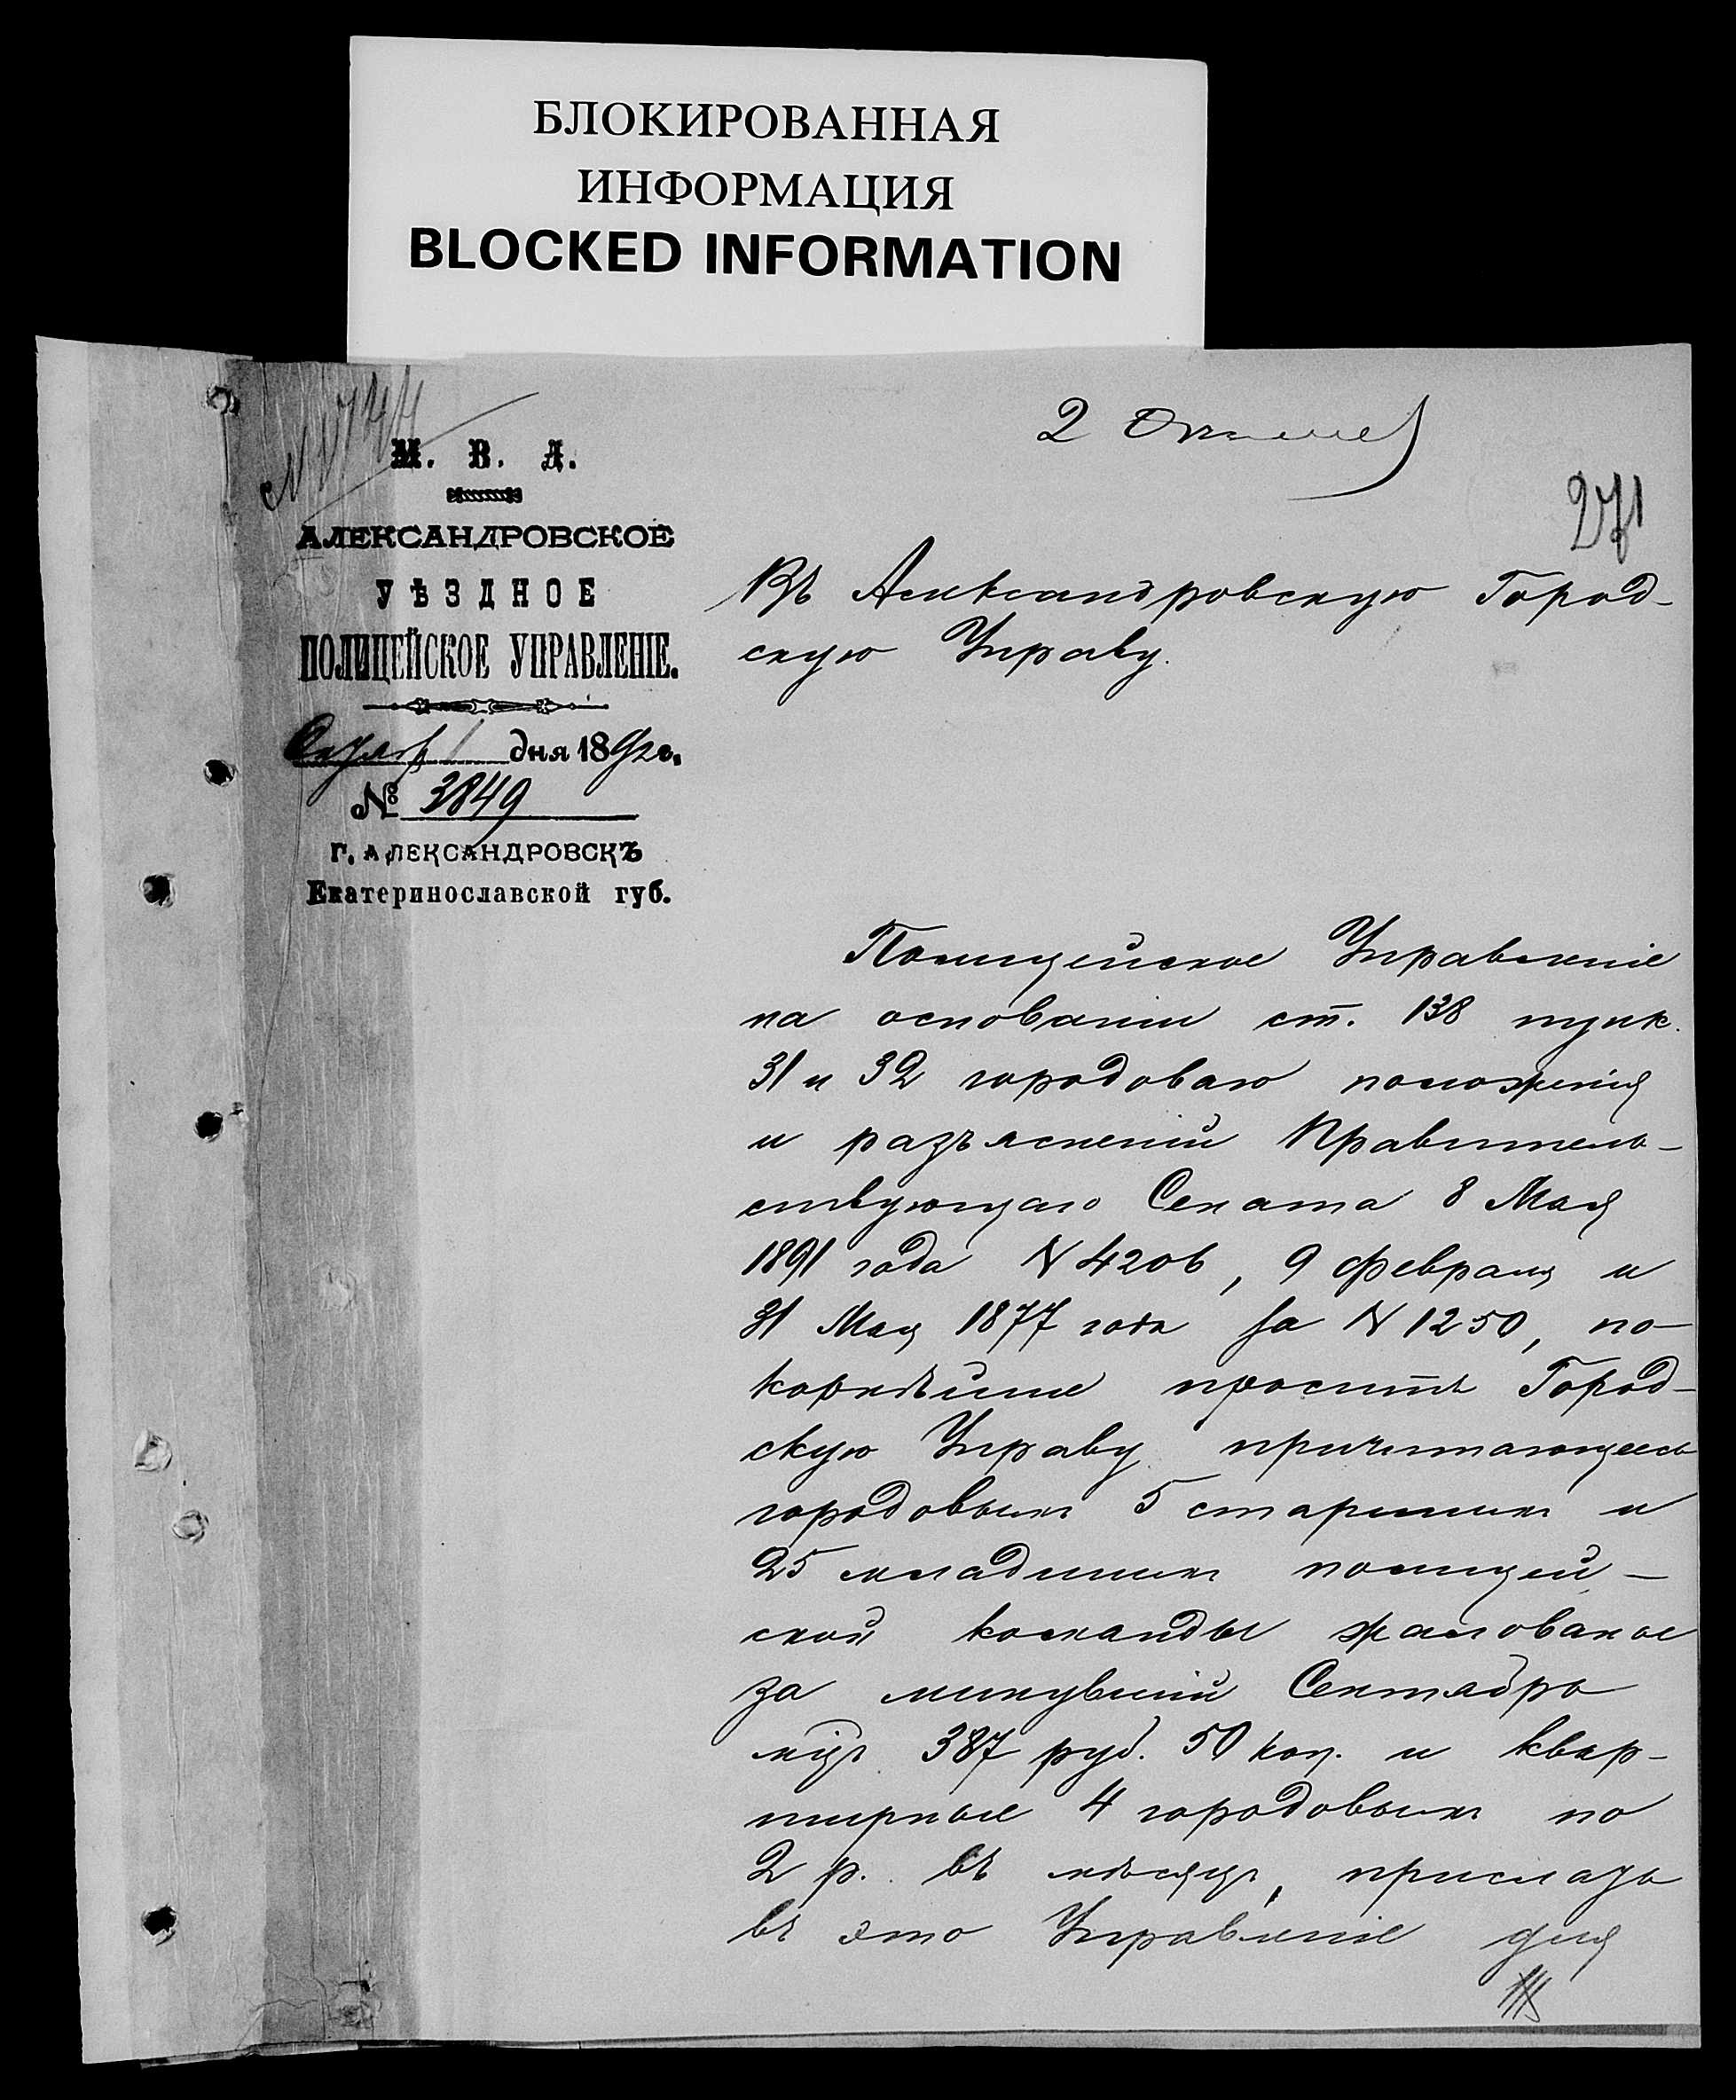 БЛОКИРОВАННАЯ
ИНФОРМАЦИЯ
BLOCKED INFORMATION
2 Октября
271
М. В. Д.
АЛЕКСАНДРОВСКОЕ
УѢЗДНОЕ
ПОЛИЦЕЙСКОЕ УПРАВЛЕНІЕ.
Октябр 1 дня 1892 г.
№ 3849
г. АЛЕКСАНДРОВСКЪ
Екатеринославской губ.
Въ Александровскую Город-
скую Управу.
Полицейское Управленіе
на основаніи ст. 138 пунк.
31 и 32 городоваго положенія
и разъясненій Правитель-
ствующаго Сената 8 Мая
1891 года N 4206, 9 февраля и
31 Мая 1877 года за N 1250, по-
корнѣйше проситъ Город-
скую Управу причитающееся
городовымъ 5 старшимъ и
25 младшимъ полицей-
ской команды жалованье
за минувшій Сентябрь
мцъ 387 руб. 50 коп. и квар-
тирные 4 городовымъ по
2 р. въ мѣсяцъ, прислать
въ это Управленіе для